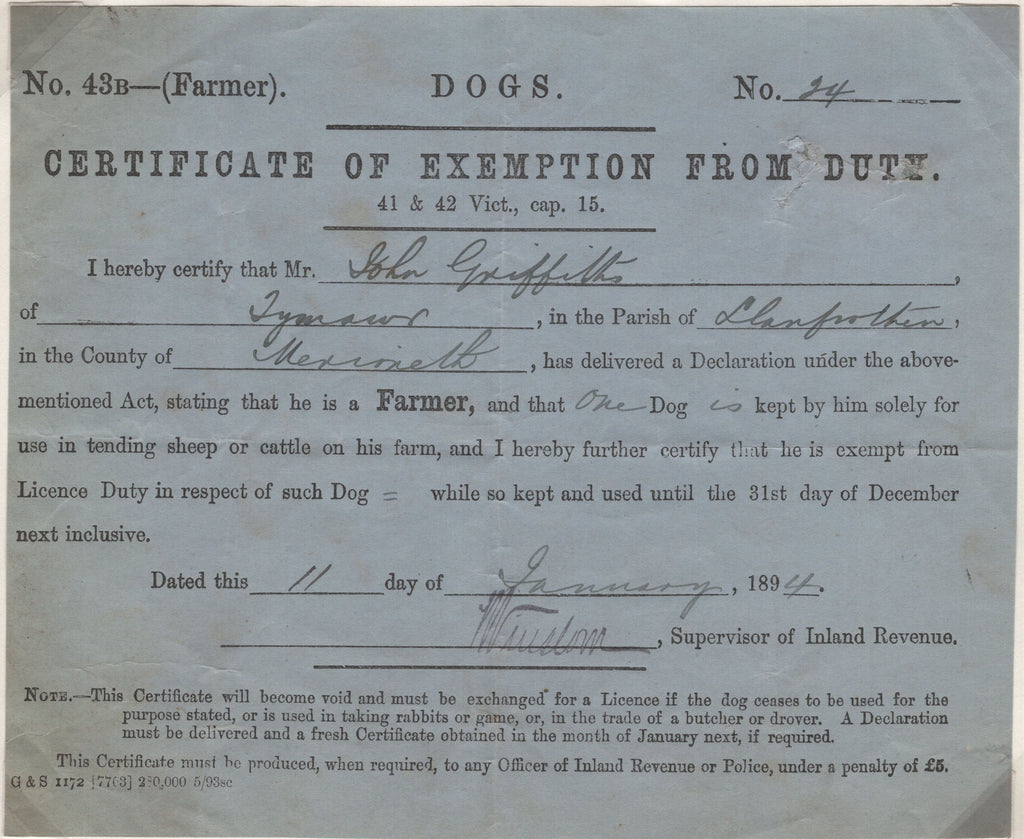 No. 43B—(Farmer). DOGS. No. 24
CERTIFICATE OF EXEMPTION FROM DUTY.
41 & 42 Vict., cap. 15.
I hereby certify that Mr. John Griffiths,
of Tymawr, in the Parish of Llanfrothen,
in the County of Merioneth, has delivered a Declaration under the above-
mentioned Act, stating that he is a Farmer, and that One Dog is kept by him solely for
use in tending sheep or cattle on his farm, and I hereby further certify that he is exempt from
Licence Duty in respect of such Dog = while so kept and used until the 31st day of December
next inclusive.
Dated this 11 day of January, 1894.
Winslow, Supervisor of Inland Revenue.
NOTE.—This Certificate will become void and must be exchanged for a Licence if the dog ceases to be used for the
purpose stated, or is used in taking rabbits or game, or, in the trade of a butcher or drover. A Declaration
must be delivered and a fresh Certificate obtained in the month of January next, if required.
This Certificate must be produced, when required, to any Officer of Inland Revenue or Police, under a penalty of £5.
G & S 1172 [7703] 5/93sc